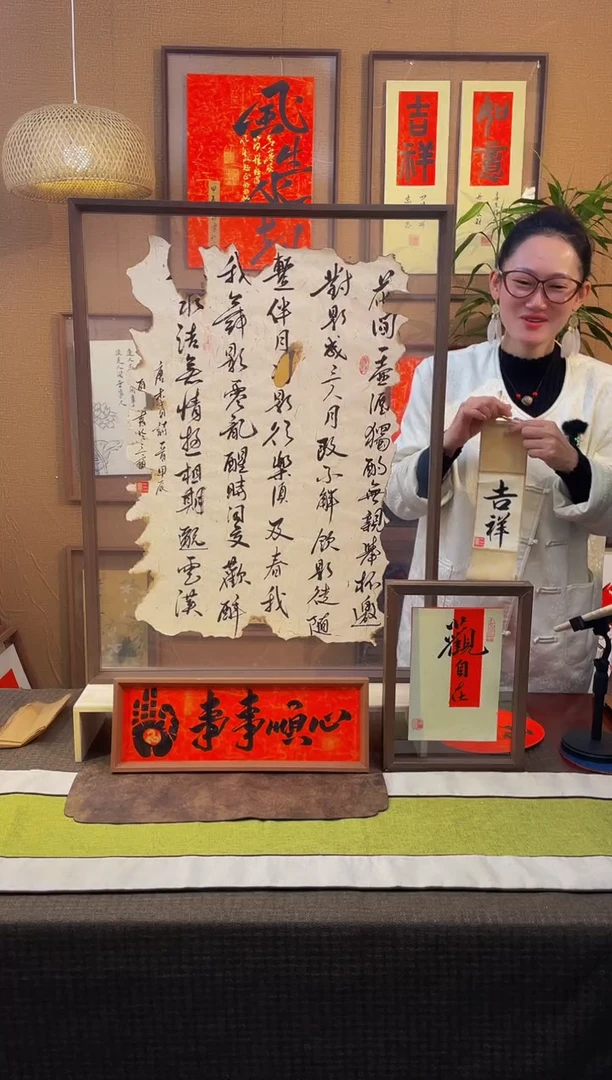 風生
如意
吉祥
花間一壺酒獨酌無親舉杯邀
對影成三人月既不解飲影徒隨
暫伴月將影行樂須及春我
我舞影零亂醒時同交歡醉
永結無情遊相期邈雲漢
唐李白詩
吉祥
觀自在
事事順心